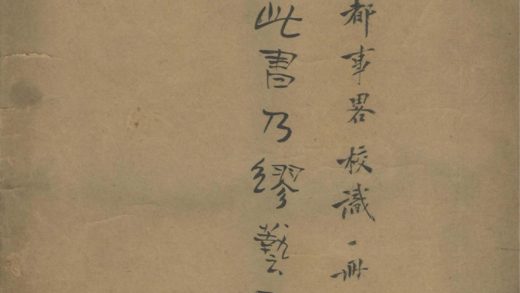 都事畧校識一冊
此書乃繆藝